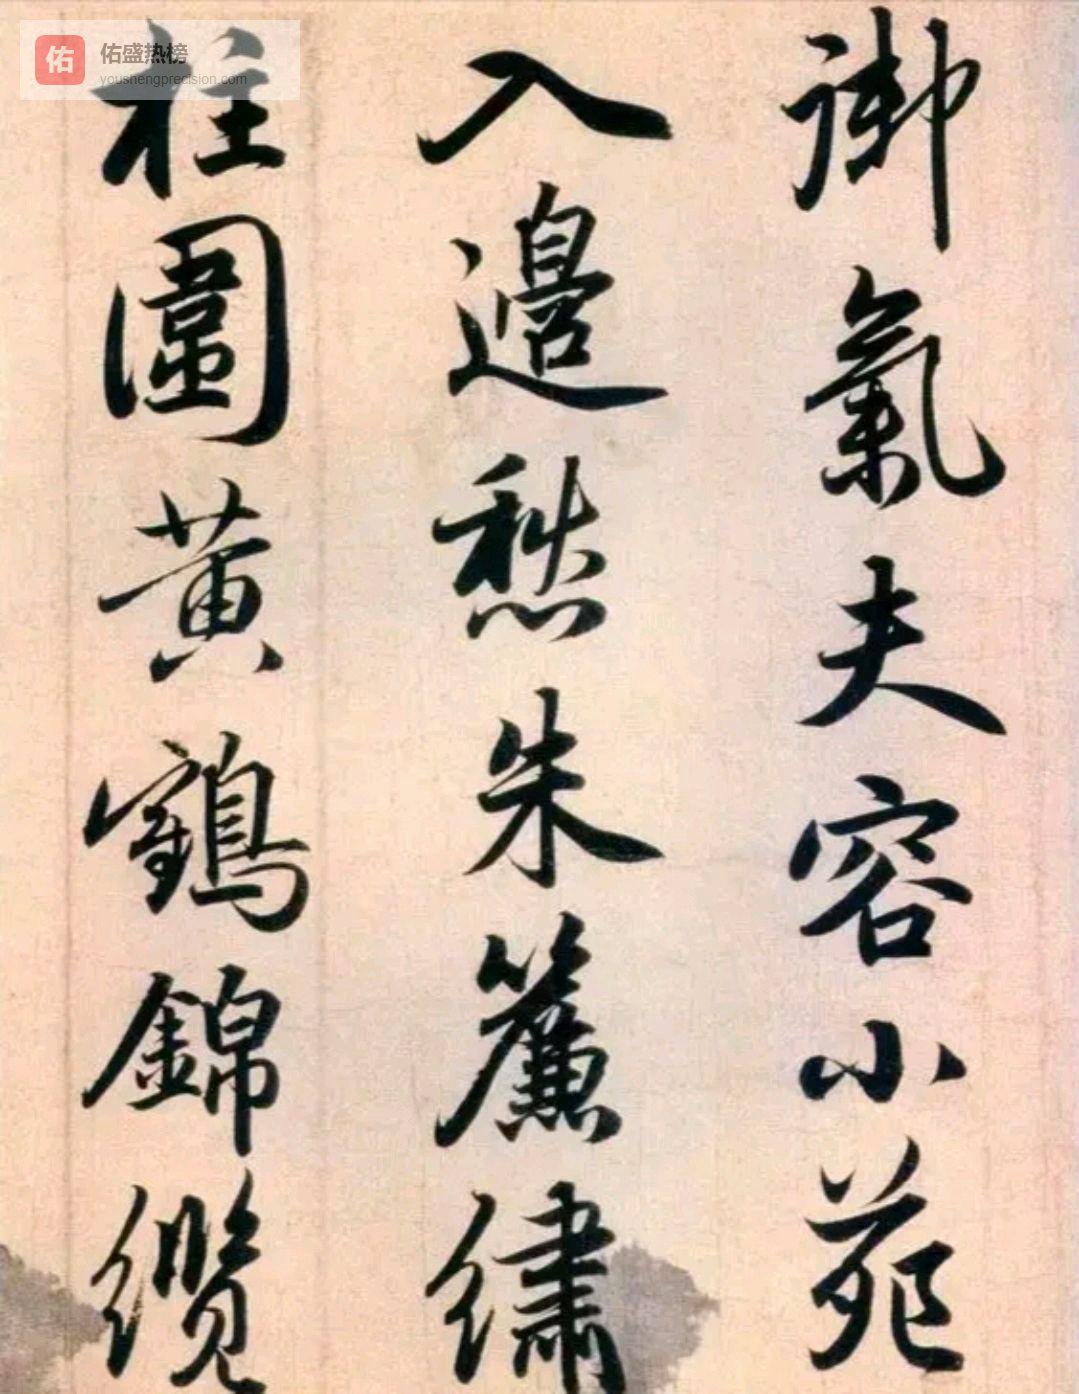 佑
佑盛热榜
youshengprecision.com
御氣夫容小苑
入邊愁朱簾繡
柱圍黃鶴錦纜